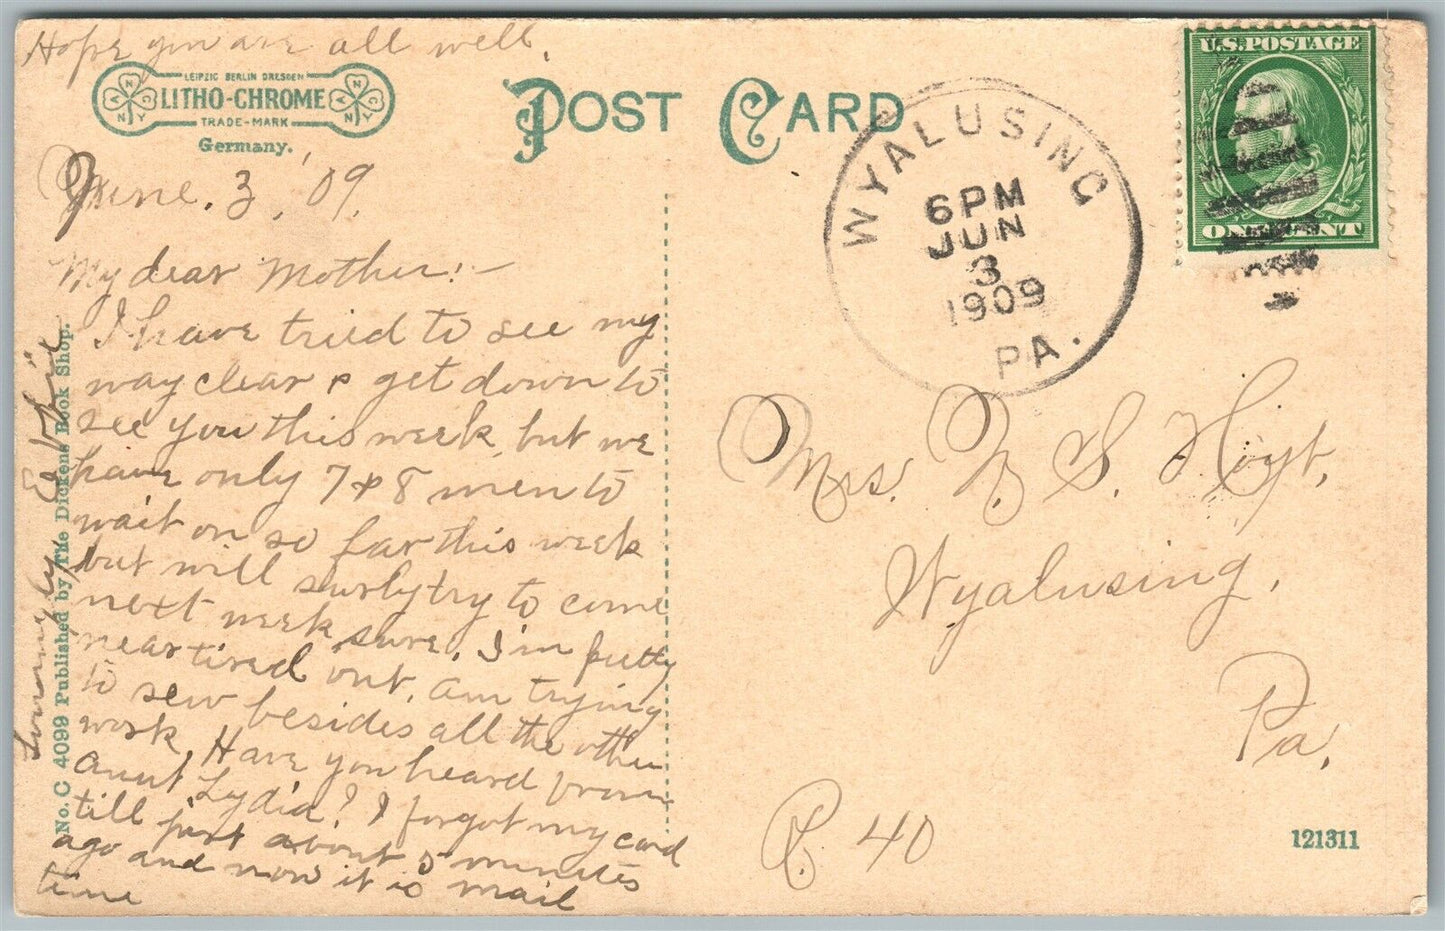 Hope you are all well.
LEIPZIG BERLIN DRESDEN
LITHO-CHROME
TRADE-MARK
Germany.
N Y C N Y
N Y C N Y
POST CARD
June. 3, '09.
My dear Mother:—
I have tried to see my
way clear & get down to
see you this week, but we
have only 7 & 8 men to
wait on so far this week
but will surly try to come
next week sure. I'm pretty
near tired out. am trying
to sew besides all the other
work. Have you heard from
aunt Lydia? I forgot my card
till just about 5 minutes
ago and now it is mail
time
Lovingly Effie
No. C 4099 Published by The Dickens Book Shop.
WYALUSING
6 PM
JUN
3
1909
PA.
U.S. POSTAGE
ONE CENT
Mrs. N. S. Hoyt,
Wyalusing,
Pa.
R. 40
121311